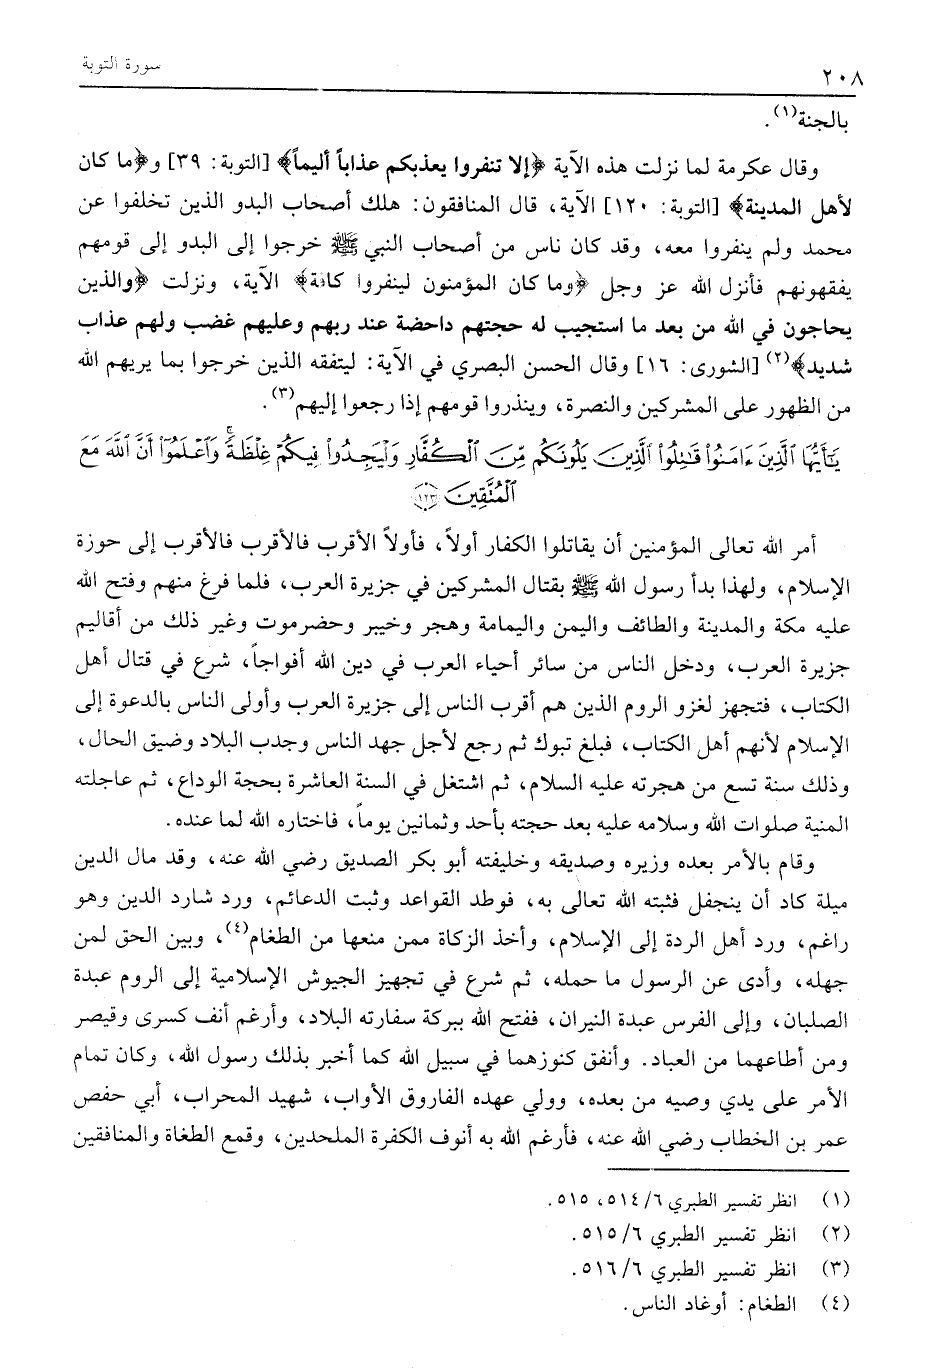 سورة التوبة
٢٠٨
بالجنة(١).
وقال عكرمة لما نزلت هذه الآية ﴿إلا تنفروا يعذبكم عذاباً أليماً﴾ [التوبة: ٣٩] و﴿ما كان
لأهل المدينة﴾ [التوبة: ١٢٠] الآية، قال المنافقون: هلك أصحاب البدو الذين تخلفوا عن
محمد ولم ينفروا معه، وقد كان ناس من أصحاب النبي ﷺ خرجوا إلى البدو إلى قومهم
يفقهونهم فأنزل الله عز وجل ﴿وما كان المؤمنون لينفروا كافة﴾ الآية، ونزلت ﴿والذين
يحاجون في الله من بعد ما استجيب له حجتهم داحضة عند ربهم وعليهم غضب ولهم عذاب
شديد﴾(٢) [الشورى: ١٦] وقال الحسن البصري في الآية: ليتفقه الذين خرجوا بما يريهم الله
من الظهور على المشركين والنصرة، وينذروا قومهم إذا رجعوا إليهم(٣).
يَٰٓأَيُّهَا ٱلَّذِينَ ءَامَنُوا۟ قَٰتِلُوا۟ ٱلَّذِينَ يَلُونَكُم مِّنَ ٱلْكُفَّارِ وَلْيَجِدُوا۟ فِيكُمْ غِلْظَةً ۚ وَٱعْلَمُوٓا۟ أَنَّ ٱللَّهَ مَعَ
ٱلْمُتَّقِينَ ١٢٣
أمر الله تعالى المؤمنين أن يقاتلوا الكفار أولاً، فأولاً الأقرب فالأقرب فالأقرب إلى حوزة
الإسلام، ولهذا بدأ رسول الله ﷺ بقتال المشركين في جزيرة العرب، فلما فرغ منهم وفتح الله
عليه مكة والمدينة والطائف واليمن واليمامة وهجر وخيبر وحضرموت وغير ذلك من أقاليم
جزيرة العرب، ودخل الناس من سائر أحياء العرب في دين الله أفواجاً، شرع في قتال أهل
الكتاب، فتجهز لغزو الروم الذين هم أقرب الناس إلى جزيرة العرب وأولى الناس بالدعوة إلى
الإسلام لأنهم أهل الكتاب، فبلغ تبوك ثم رجع لأجل جهد الناس وجدب البلاد وضيق الحال،
وذلك سنة تسع من هجرته عليه السلام، ثم اشتغل في السنة العاشرة بحجة الوداع، ثم عاجلته
المنية صلوات الله وسلامه عليه بعد حجته بأحد وثمانين يوماً، فاختاره الله لما عنده.
وقام بالأمر بعده وزيره وصديقه وخليفته أبو بكر الصديق رضي الله عنه، وقد مال الدين
ميلة كاد أن ينجفل فثبته الله تعالى به، فوطد القواعد وثبت الدعائم، ورد شارد الدين وهو
راغم، ورد أهل الردة إلى الإسلام، وأخذ الزكاة ممن منعها من الطغام(٤)، وبين الحق لمن
جهله، وأدى عن الرسول ما حمله، ثم شرع في تجهيز الجيوش الإسلامية إلى الروم عبدة
الصلبان، وإلى الفرس عبدة النيران، ففتح الله ببركة سفارته البلاد، وأرغم أنف كسرى وقيصر
ومن أطاعهما من العباد. وأنفق كنوزهما في سبيل الله كما أخبر بذلك رسول الله، وكان تمام
الأمر على يدي وصيه من بعده، وولي عهده الفاروق الأواب، شهيد المحراب، أبي حفص
عمر بن الخطاب رضي الله عنه، فأرغم الله به أنوف الكفرة الملحدين، وقمع الطغاة والمنافقين
(١) انظر تفسير الطبري ٥١٤/٦، ٥١٥.
(٢) انظر تفسير الطبري ٥١٥/٦.
(٣) انظر تفسير الطبري ٥١٦/٦.
(٤) الطغام: أوغاد الناس.